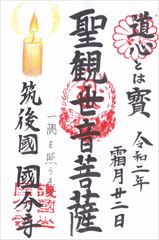 道心とは寶
令和二年
霜月廿二日
聖観世音菩薩
一隅を照らす
筑後國 國分寺